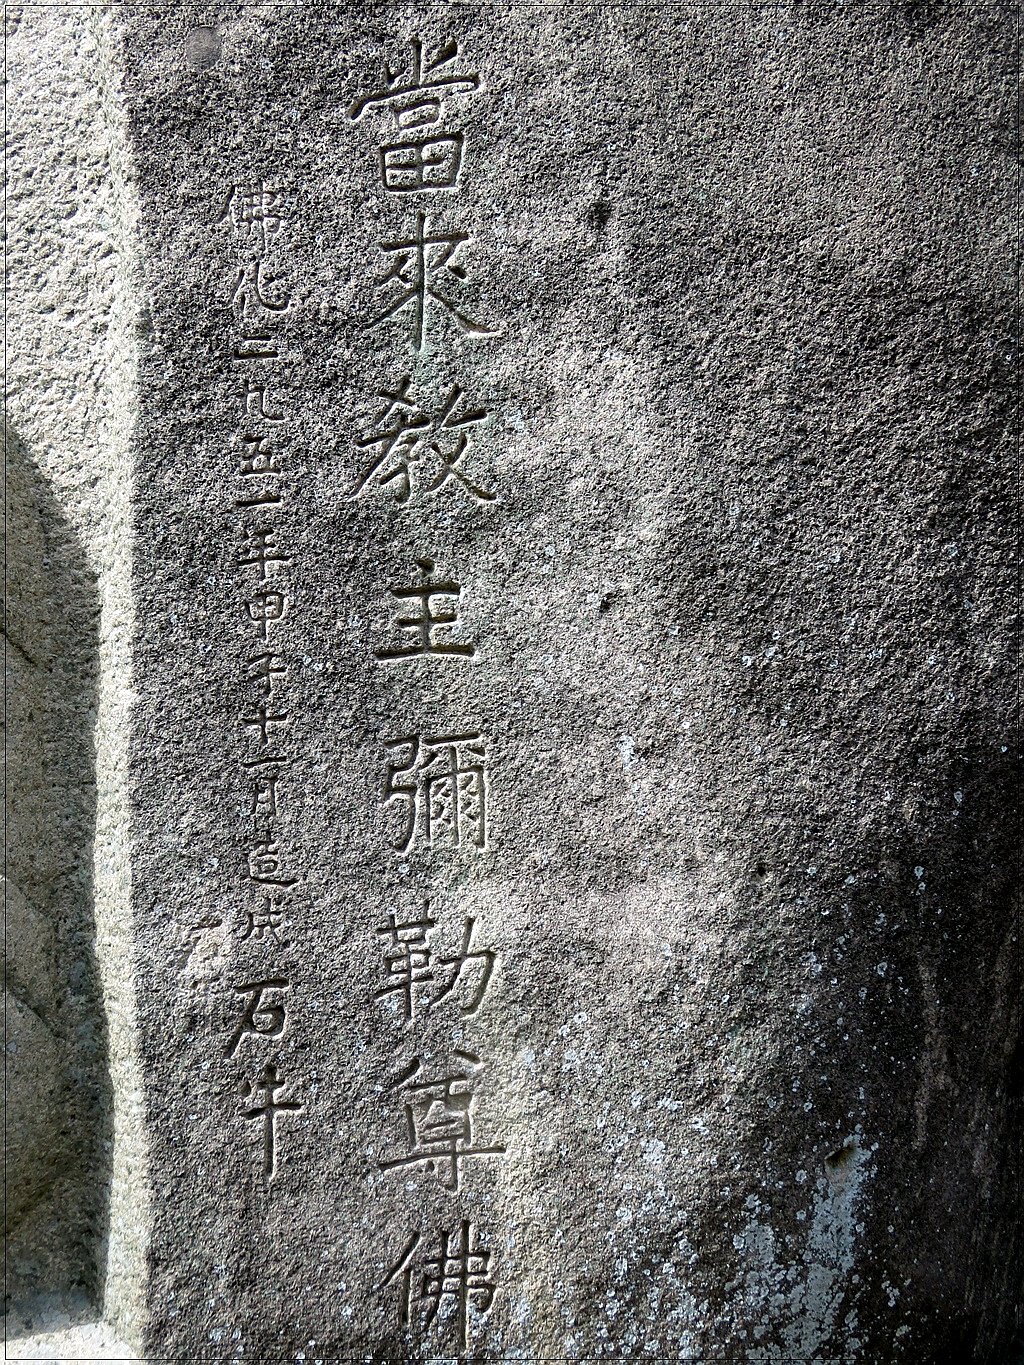 當來教主彌勒尊佛
佛化二九五一年甲子十一月造成 石牛